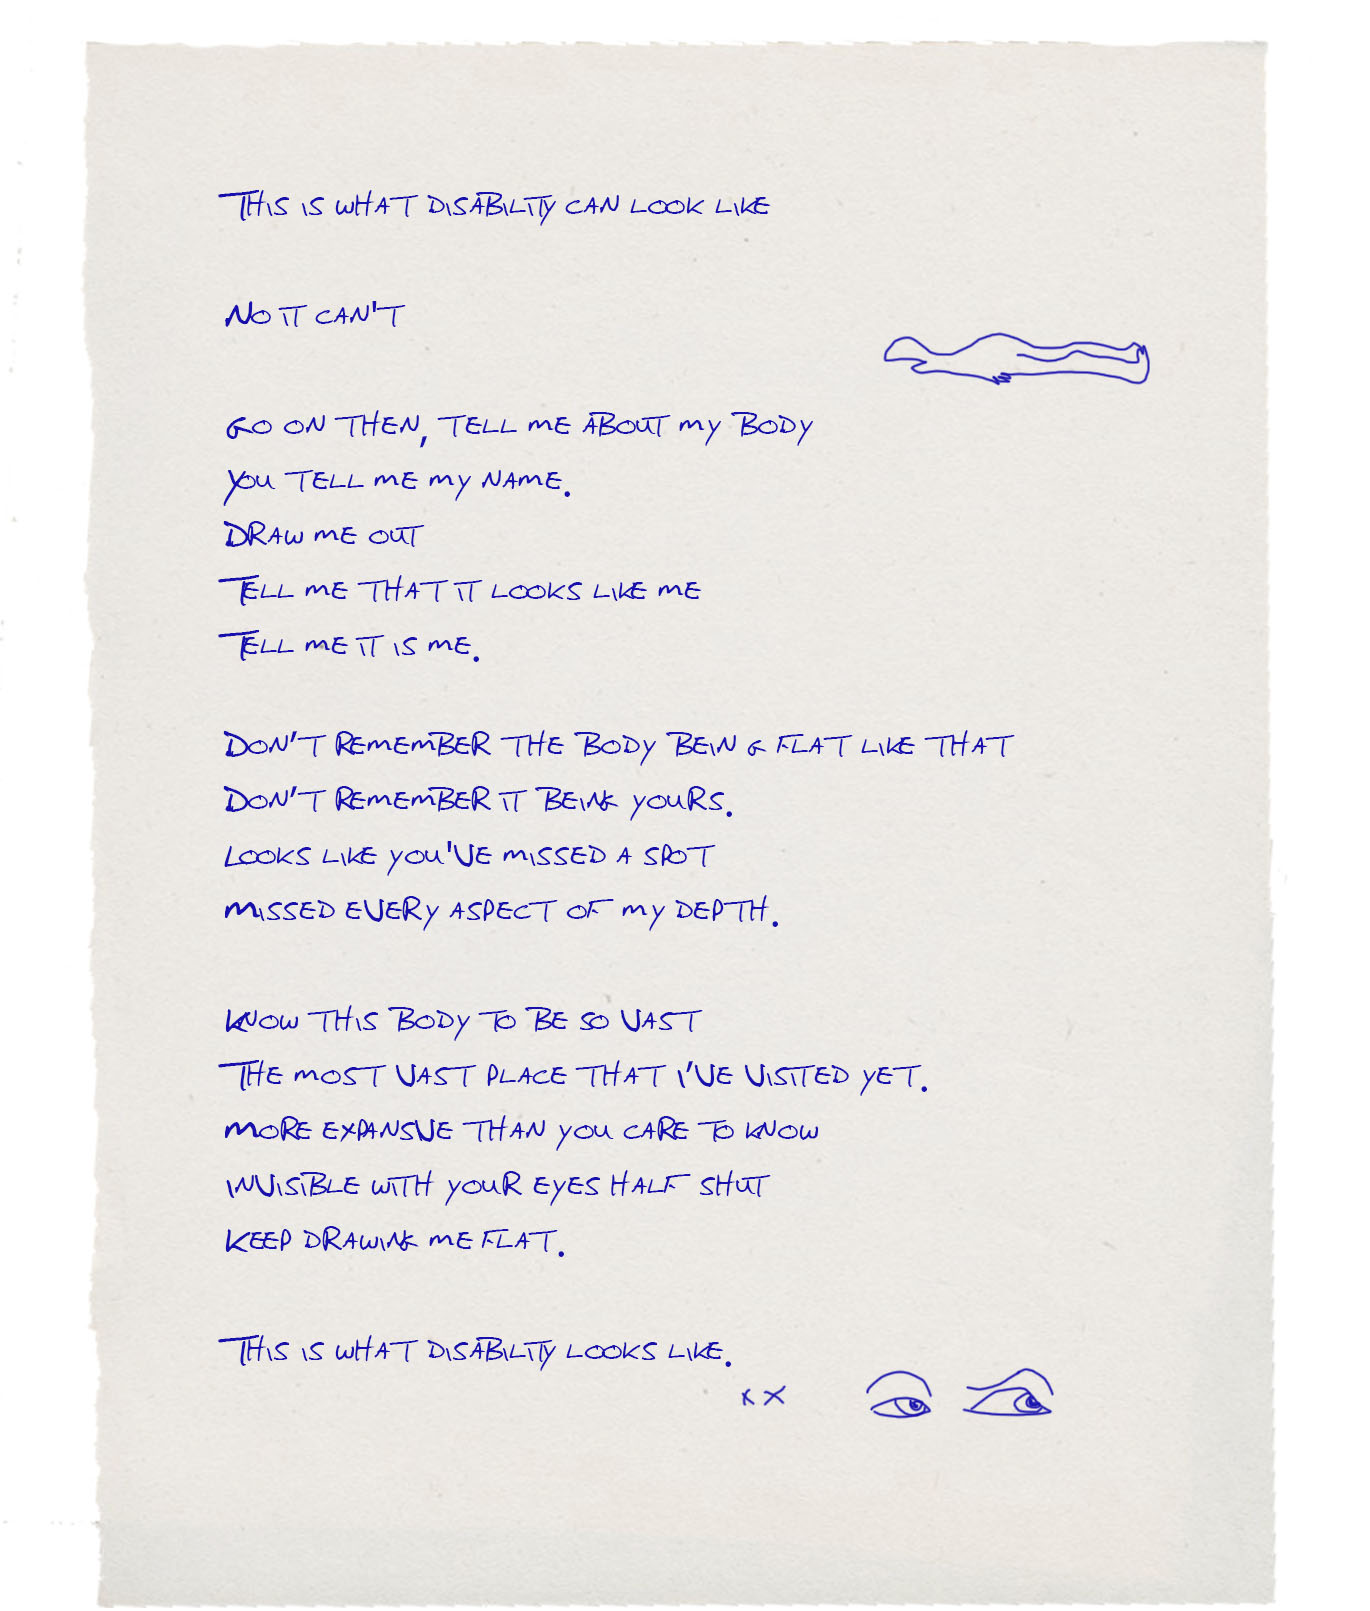 THIS IS WHAT DISABILITY CAN LOOK LIKE
NO IT CAN'T
GO ON THEN, TELL ME ABOUT MY BODY
YOU TELL ME MY NAME.
DRAW ME OUT
TELL ME THAT IT LOOKS LIKE ME
TELL ME IT IS ME.
DON'T REMEMBER THE BODY BEING FLAT LIKE THAT
DON'T REMEMBER IT BEING YOURS.
LOOKS LIKE YOU'VE MISSED A SPOT
MISSED EVERY ASPECT OF MY DEPTH.
KNOW THIS BODY TO BE SO VAST
THE MOST VAST PLACE THAT I'VE VISITED YET.
MORE EXPANSIVE THAN YOU CARE TO KNOW
INVISIBLE WITH YOUR EYES HALF SHUT
KEEP DRAWING ME FLAT.
THIS IS WHAT DISABILITY LOOKS LIKE.
XX